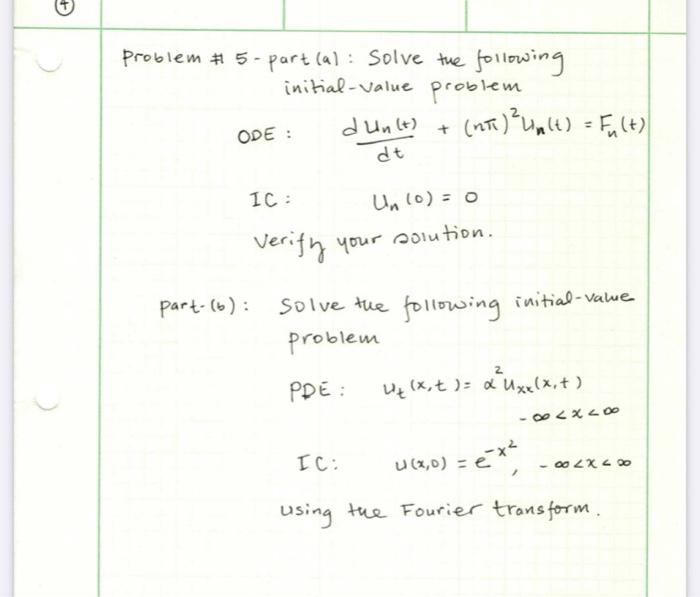 4
Problem # 5 - part (a) : Solve the following
initial-value problem
ODE : d Un(t)/dt + (nπ)² Un(t) = Fn(t)
IC : Un(0) = 0
Verify your solution.
part-(b) : Solve the following initial-value
problem
PDE : ut(x,t) = α² uxx(x,t)
-∞ < x < ∞
IC : u(x,0) = e^-x², -∞ < x < ∞
using the Fourier transform.